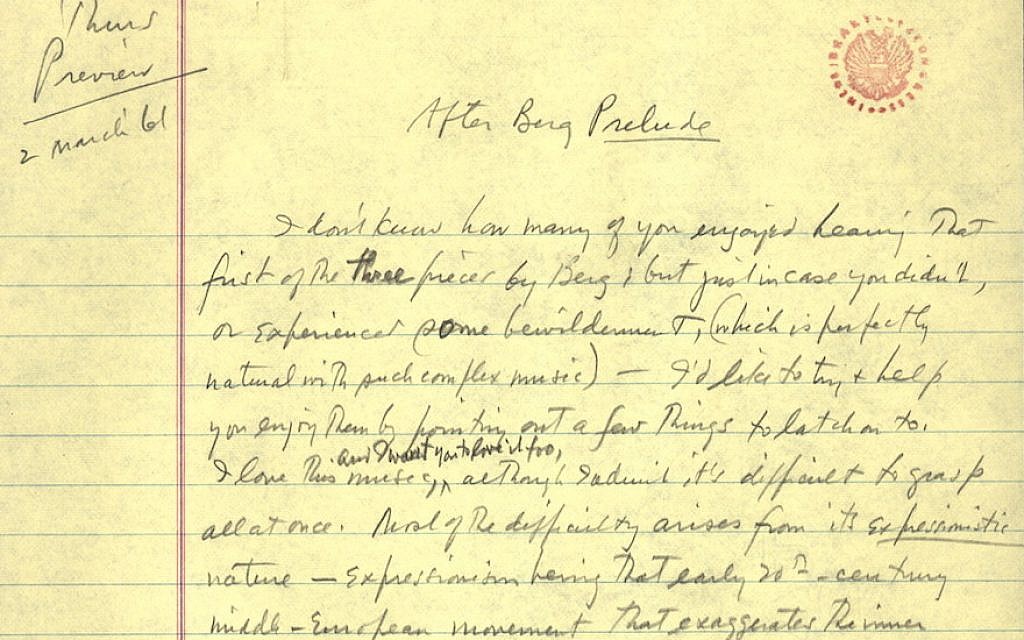 Thurs
Preview
2 march '61
LIBRARY OF CONGRESS
After Berg Prelude
I don't know how many of you enjoyed hearing that
first of the three pieces by Berg; but just in case you didn't,
or experienced some bewilderment, (which is perfectly
natural with such complex music) — I'd like to try & help
you enjoy them by pointing out a few things to latch on to.
and I want you to love it too,
I love this music, although I admit it's difficult to grasp
all at once. Most of the difficulty arises from its expressionistic
nature — Expressionism being that early 20th-century
middle-European movement that exaggerates the inner